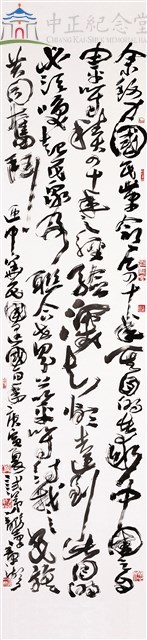 中正紀念堂
CHIANG KAI-SHEK MEMORIAL HALL
余致力國民革命凡四十年其目的在求中國之自
由平等積四十年之經驗深知欲達到此目的
必須喚起民眾及聯合世界以平等待我之民族
共同奮鬥 民國建國百年庚寅夏